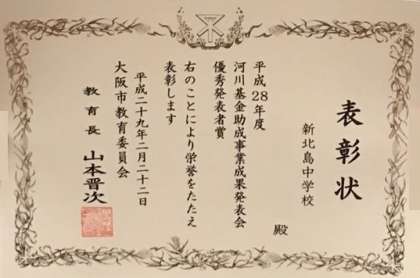 表彰状
新北島中学校
殿
平成28年度
河川基金助成事業成果発表会
優秀発表者賞
右のことにより栄誉をたたえ
表彰します
平成二十九年二月二十二日
大阪市教育委員会
教育長 山本晋次